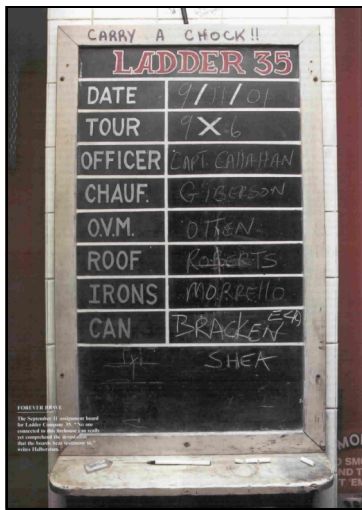 CARRY A CHOCK!!
LADDER 35
DATE 9/11/01
TOUR 9 X 6
OFFICER CAPT. CALLAHAN
CHAUF. GIBERSON
O.V.M. OTTEN
ROOF ROBERTS
IRONS MORRELLO
CAN BRACKEN E40
SHEA
FOREVER BRAVE
The September 11 assignment board
for Ladder Company 35. "No one
connected to this firehouse can really
yet comprehend the devastation
that the boards bear testimony to,"
writes Halberstam.